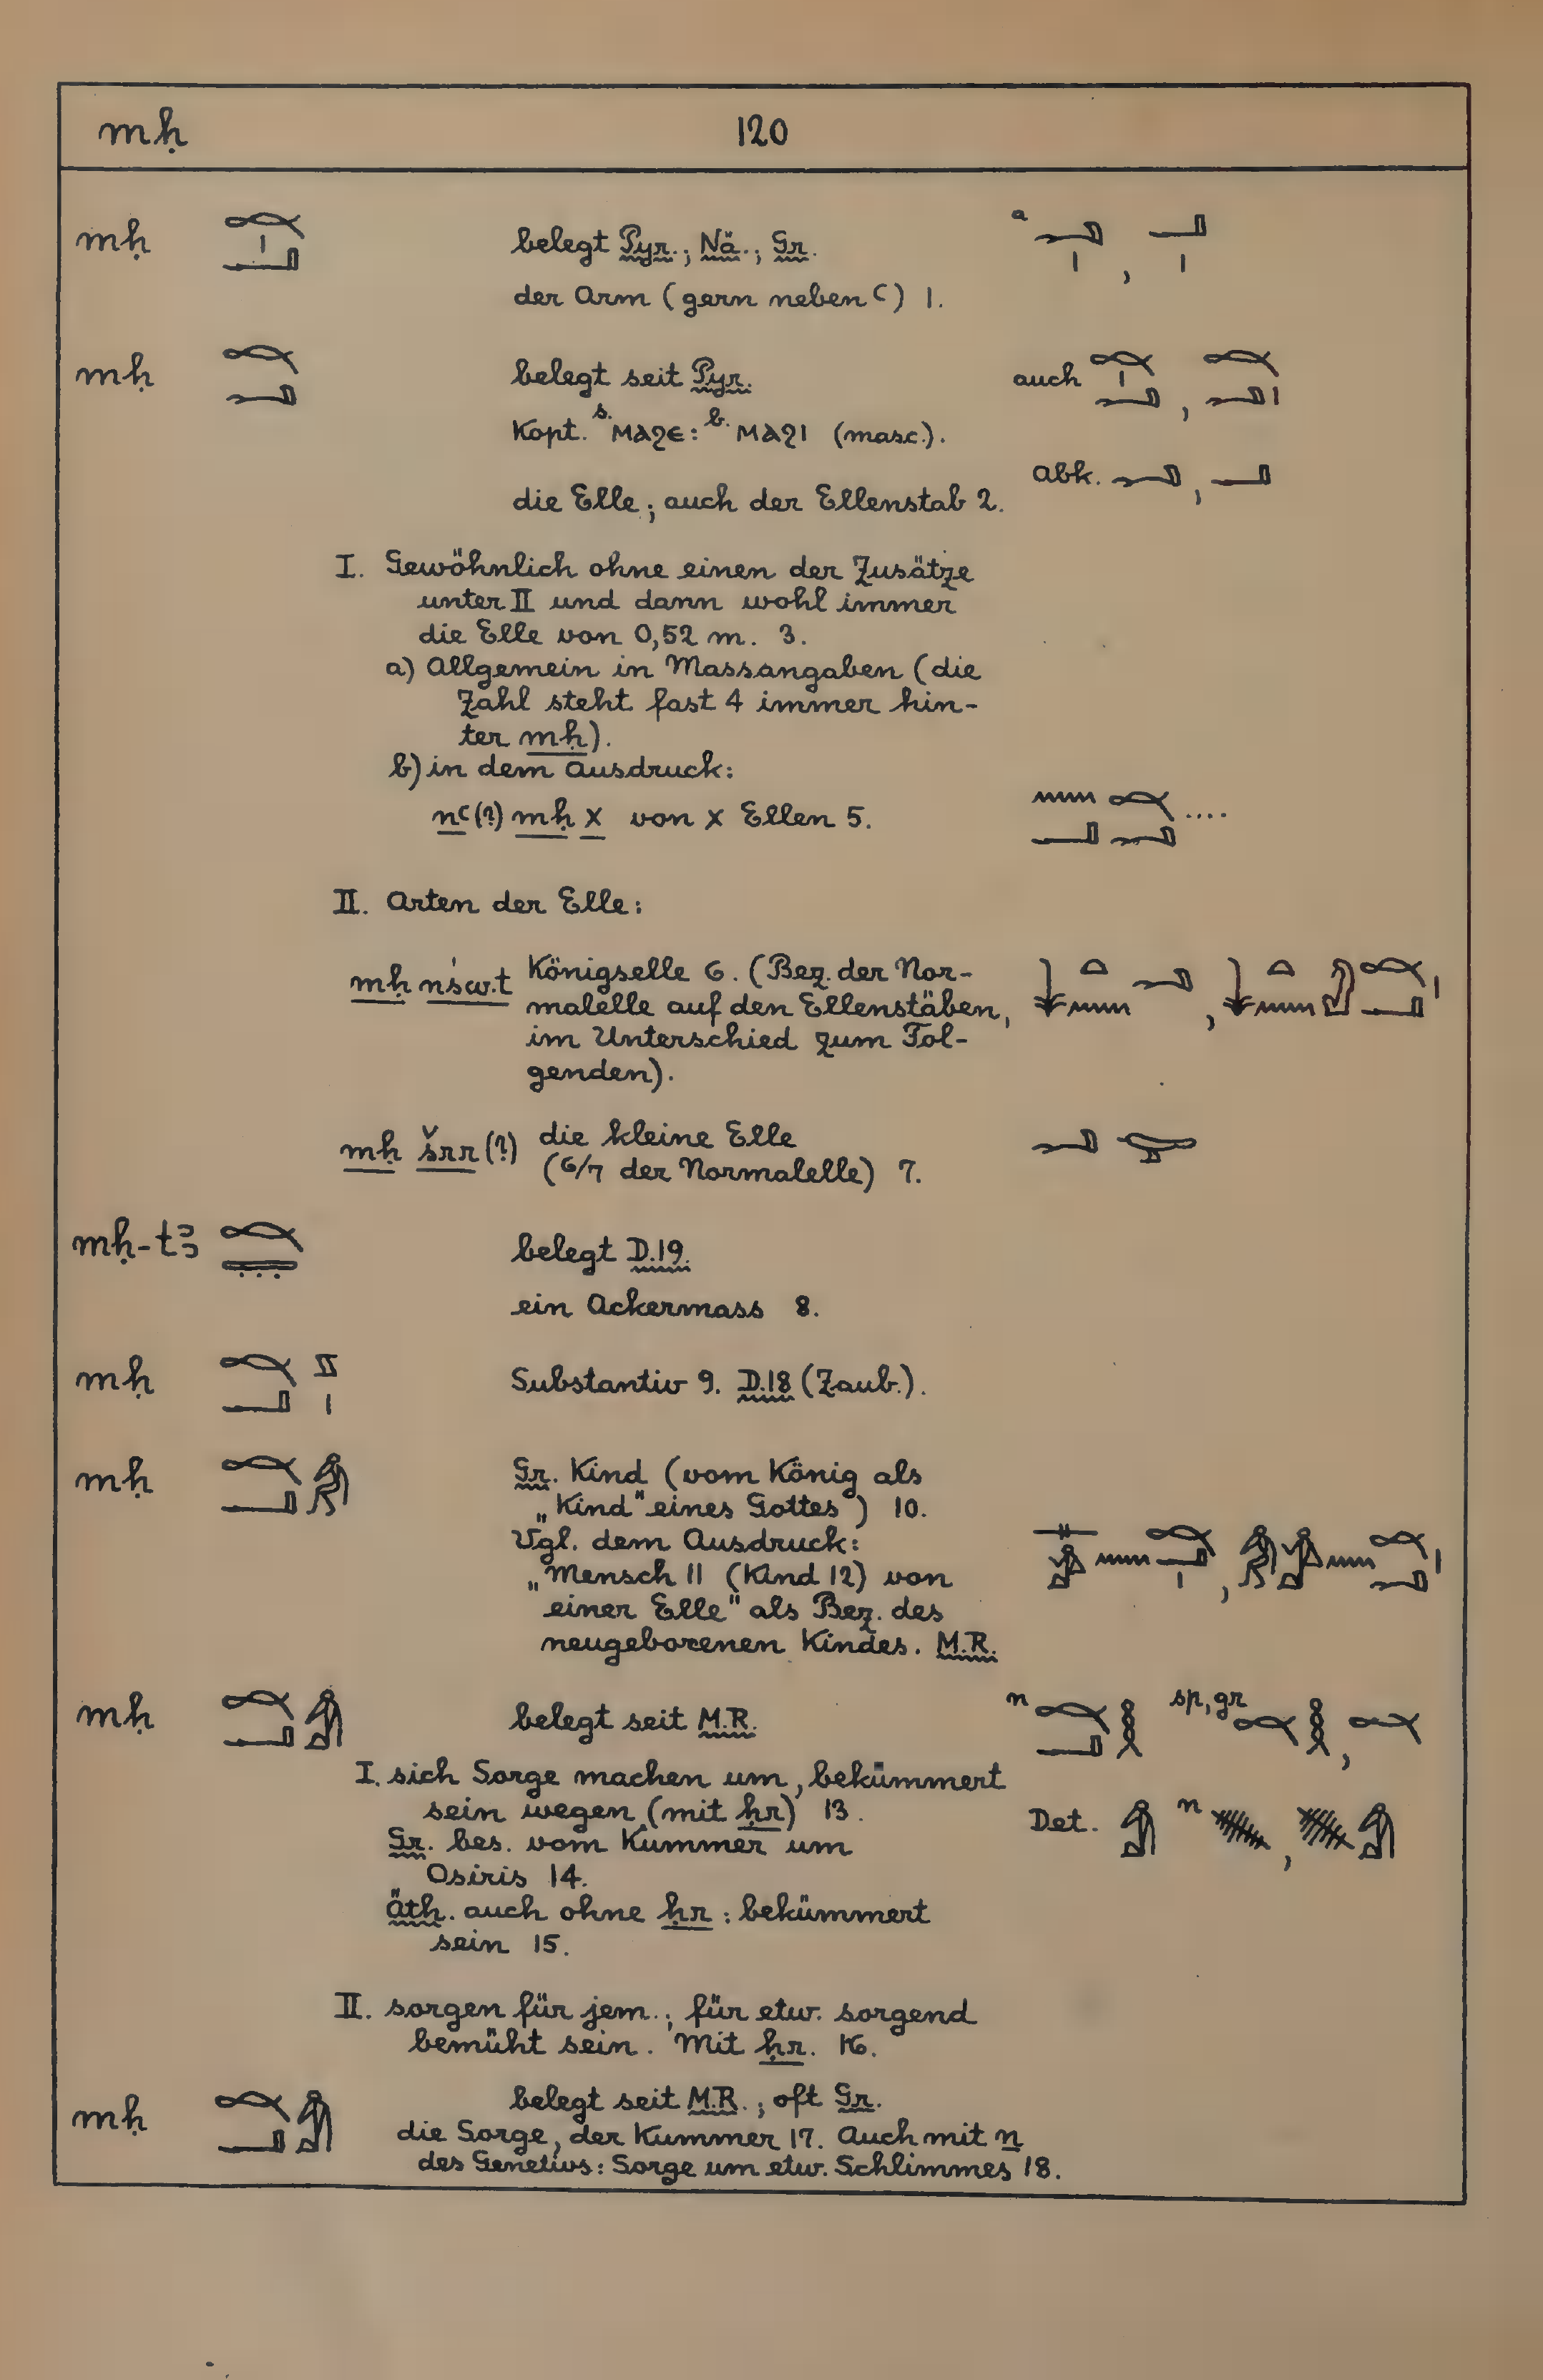 mḥ 120
mḥ belegt Pyr.; Nä.; Gr.
der Arm (gern neben ꜥ) 1.
mḥ belegt seit Pyr. auch
Kopt. s. ⲙⲁϩⲉ: b. ⲙⲁϩⲓ (masc.).
Abk.
die Elle; auch der Ellenstab 2.
I. Gewöhnlich ohne einen der Zusätze
unter II und dann wohl immer
die Elle von 0,52 m. 3.
a) Allgemein in Massangaben (die
Zahl steht fast 4 immer hin-
ter mḥ).
b) in dem Ausdruck:
nꜥ(?) mḥ x von x Ellen 5. ....
II. Arten der Elle:
mḥ nśw.t Königselle 6. (Bez. der Nor-
malelle auf den Ellenstäben,
im Unterschied zum Fol-
genden).
mḥ šrr(?) die kleine Elle
(6/7 der Normalelle) 7.
mḥ-tꜣ belegt D.19.
ein Ackermass 8.
mḥ Substantiv 9. D.18 (Zaub.).
mḥ Gr. Kind (vom König als
„Kind" eines Gottes) 10.
Vgl. dem Ausdruck:
„Mensch 11 (Kind 12) von
einer Elle" als Bez. des
neugeborenen Kindes. M.R.
mḥ belegt seit M.R. n sp, gr
I. sich Sorge machen um, bekümmert
sein wegen (mit ḥr) 13. Det. n
Gr. bes. vom Kummer um
Osiris 14.
Äth. auch ohne ḥr: bekümmert
sein 15.
II. sorgen für jem.; für etw. sorgend
bemüht sein. Mit ḥr. 16.
mḥ belegt seit M.R.; oft Gr.
die Sorge, der Kummer 17. Auch mit n
des Genetivs: Sorge um etw. Schlimmes 18.